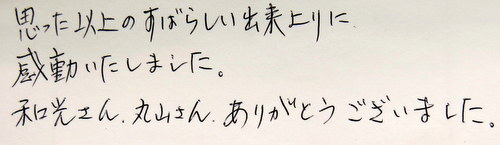 思った以上のすばらしい出来上りに
感動いたしました。
和光さん、丸山さん、ありがとうございました。